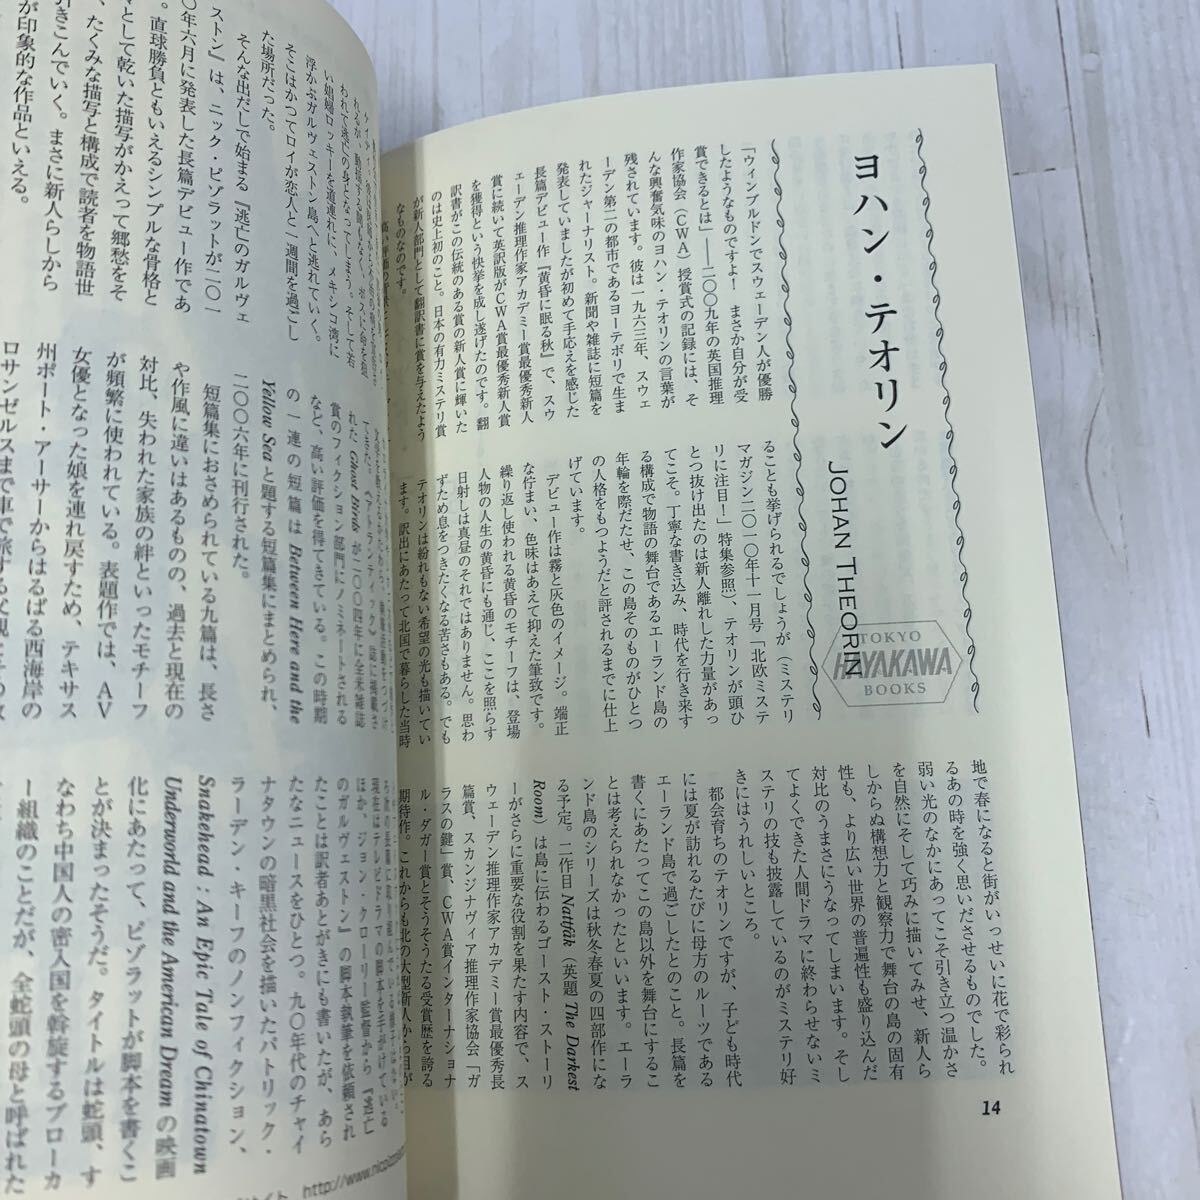 ヨハン・テオリン
JOHAN THEORIN
TOKYO
HAYAKAWA
BOOKS
「ウィンブルドンでスウェーデン人が優勝
したようなものですよ!　まさか自分が受
賞できるとは」――二〇〇九年の英国推理
作家協会（ＣＷＡ）授賞式の記録には、そ
んな興奮気味のヨハン・テオリンの言葉が
残されています。彼は一九六三年、スウェ
ーデン第二の都市であるヨーテボリで生ま
れたジャーナリスト。新聞や雑誌に短篇を
発表していましたが初めて手応えを感じた
長篇デビュー作『黄昏に眠る秋』で、スウ
ェーデン推理作家アカデミー賞最優秀新人
賞に続いて英訳版がＣＷＡ賞最優秀新人賞
を獲得という快挙を成し遂げたのです。翻
訳書がこの伝統のある賞の新人賞に輝いた
のは史上初のこと。日本の有力ミステリ賞
が新人部門として翻訳書に賞を与えたよう
なものなのです。
ることも挙げられるでしょうが（ミステリ
マガジン二〇一〇年十一月号「北欧ミステ
リに注目！」特集参照）、テオリンが頭ひ
とつ抜け出たのは新人離れした力量があっ
てこそ。丁寧な書き込み、時代を行き来す
る構成で物語の舞台であるエーランド島の
年輪を際だたせ、この島そのものがひとつ
の人格をもつようだと評されるまでに仕上
げています。
デビュー作は霧と灰色のイメージ。端正
な佇まい、色味はあえて抑えた筆致です。
繰り返し使われる黄昏のモチーフは、登場
人物の人生の黄昏にも通じ、ここを照らす
日射しは真昼のそれではありません。思わ
ずため息をつきたくなる苦さもある。でも
テオリンは紛れもない希望の光も描いてい
ます。訳出にあたって北国で暮らした当時
地で春になると街がいっせいに花で彩られ
るあの時を強く思いださせるものでした。
弱い光のなかにあってこそ引き立つ温かさ
を自然にそして巧みに描いてみせ、新人ら
しからぬ構想力と観察力で舞台の島の固有
性も、より広い世界の普遍性も盛り込んだ
対比のうまさにうなってしまいます。そし
てよくできた人間ドラマに終わらせないミ
ステリの技も披露しているのがミステリ好
きにはうれしいところ。
都会育ちのテオリンですが、子ども時代
には夏が訪れるたびに母方のルーツである
エーランド島で過ごしたとのこと。長篇を
書くにあたってこの島以外を舞台にするこ
とは考えられなかったといいます。エーラ
ンド島のシリーズは秋冬春夏の四部作にな
る予定。二作目 Nattfåk（英題 The Darkest
Room）は島に伝わるゴースト・ストーリ
ーがさらに重要な役割を果たす内容で、ス
ウェーデン推理作家アカデミー賞最優秀長
篇賞、スカンジナヴィア推理作家協会「ガ
ラスの鍵」賞、ＣＷＡ賞インターナショナ
ル・ダガー賞とそうそうたる受賞歴を誇る
期待作。これからも北の大型新人から目が
14
われて逃亡の身となってしまう。そして若
い娼婦ロッキーを道連れに、メキシコ湾に
浮かぶガルヴェストン島へと逃れていく。
そこはかつてロイが恋人と一週間を過ごし
た場所だった。
そんな出だしで始まる『逃亡のガルヴェ
ストン』は、ニック・ピゾラットが二〇一
〇年六月に発表した長篇デビュー作であ
直球勝負ともいえるシンプルな骨格と
として乾いた描写がかえって郷愁をそ
、たくみな描写と構成で読者を物語世
引きこんでいく。まさに新人らしから
が印象的な作品といえる。
れた Ghost Birds が二〇〇四年に全米雑誌
賞のフィクション部門にノミネートされる
など、高い評価を得てきている。この時期
の一連の短篇は Between Here and the
Yellow Sea と題する短篇集にまとめられ、
二〇〇六年に刊行された。
短篇集におさめられている九篇は、長さ
や作風に違いはあるものの、過去と現在の
対比、失われた家族の絆といったモチーフ
が頻繁に使われている。表題作では、ＡＶ
女優となった娘を連れ戻すため、テキサス
州ポート・アーサーからはるばる西海岸の
ロサンゼルスまで車で旅する父親
現在はテレビドラマの脚本を手がけている
ほか、ジョン・クローリー監督から『逃亡
のガルヴェストン』の脚本執筆を依頼され
たことは訳者あとがきにも書いたが、あら
たなニュースをひとつ。九〇年代のチャイ
ナタウンの暗黒社会を描いたパトリック・
ラーデン・キーフのノンフィクション、
Snakehead : An Epic Tale of Chinatown
Underworld and the American Dream の映画
化にあたって、ピゾラットが脚本を書くこ
とが決まったそうだ。タイトルは蛇頭、す
なわち中国人の密入国を斡旋するブローカ
ー組織のことだが、全蛇頭の母と呼ばれた